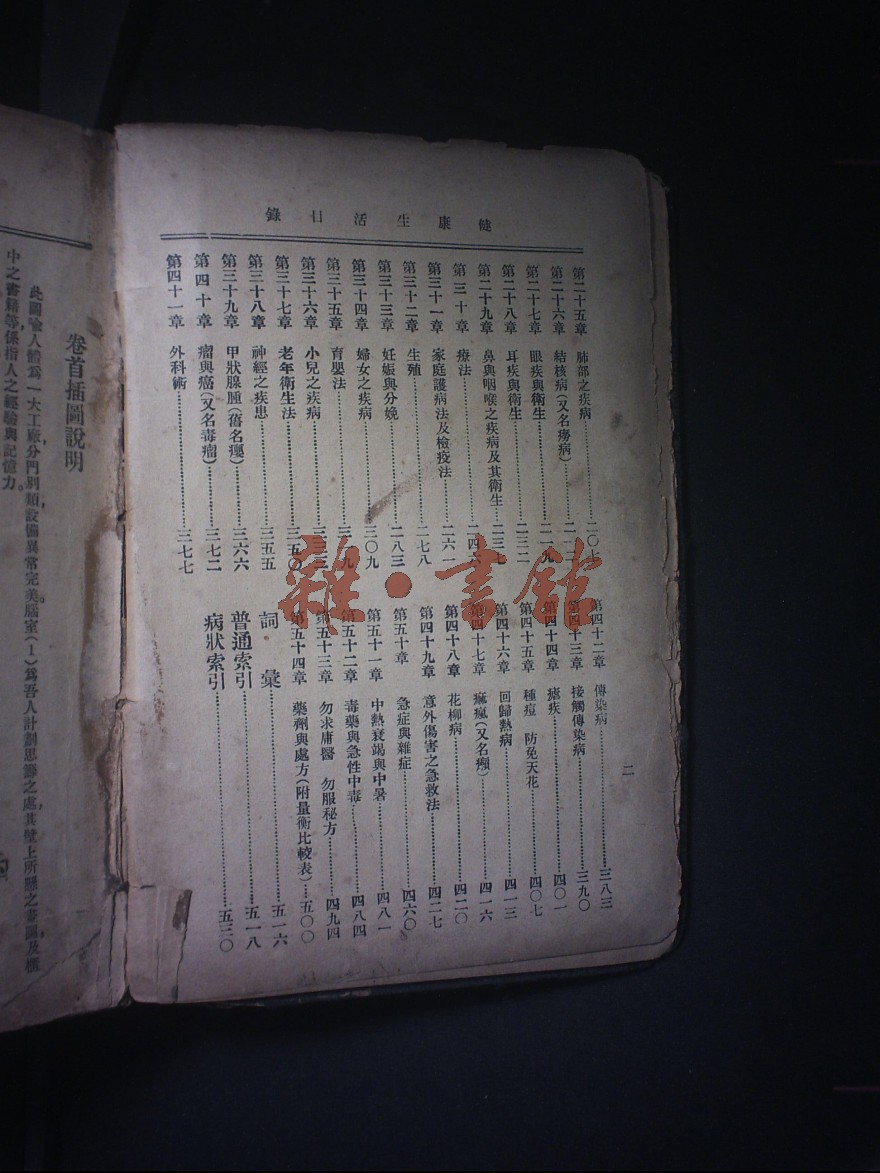 健康生活目錄
第二十五章 肺部之疾病……二〇七
第二十六章 結核病(又名癆病)……
第二十七章 眼疾與衛生……
第二十八章 耳疾與衛生……二三二
第二十九章 鼻與咽喉之疾病及其衛生……二三七
第三十章 療法……
第三十一章 家庭護病法及檢疫法……二六一
第三十二章 生殖……二七八
第三十三章 妊娠與分娩……二八三
第三十四章 婦女之疾病……三〇九
第三十五章 育嬰法……
第三十六章 小兒之疾病……
第三十七章 老年衛生法……三五〇
第三十八章 神經之疾患……三五五
第三十九章 甲狀腺腫(舊名癭)……三六六
第四十章 瘤與癌(又名毒瘤)……三七二
第四十一章 外科術……三七七
第四十二章 傳染病……三八三
第四十三章 接觸傳染病……三九〇
第四十四章 瘧疾……四〇一
第四十五章 種痘 防免天花……四〇七
第四十六章 回歸熱病……四一三
第四十七章 痲瘋(又名癩)……四一六
第四十八章 花柳病……四二〇
第四十九章 意外傷害之急救法……四二七
第五十章 急症與雜症……四六〇
第五十一章 中熱衰竭與中暑……四八一
第五十二章 毒藥與急性中毒……四八四
第五十三章 勿求庸醫 勿服秘方……四九四
第五十四章 藥劑與處方(附量衡比較表)……五〇〇
詞彙……五一六
普通索引……五一八
病狀索引……五三〇
二
卷首插圖說明
此圖喻人體爲一大工廠,分門別類,設備異常完美。腦室(1)爲吾人計劃思籌之處,其壁上所懸之畫圖及櫃
中之書籍等,係指人之經驗與記憶力。
雜·書館